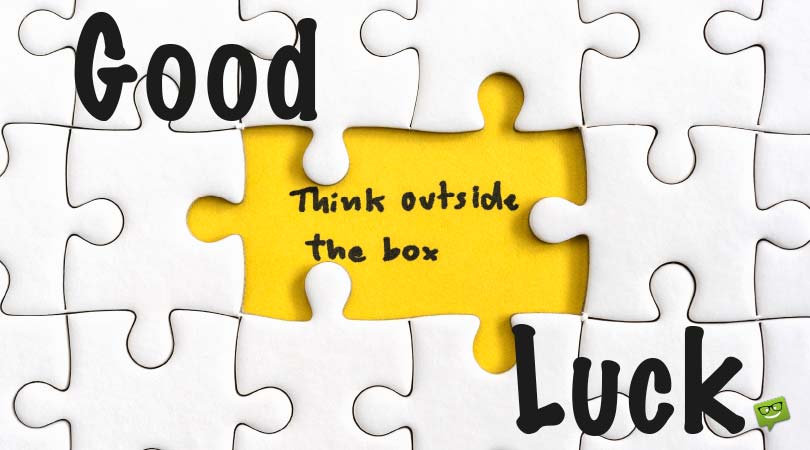 Good
Think outside
the box
Luck